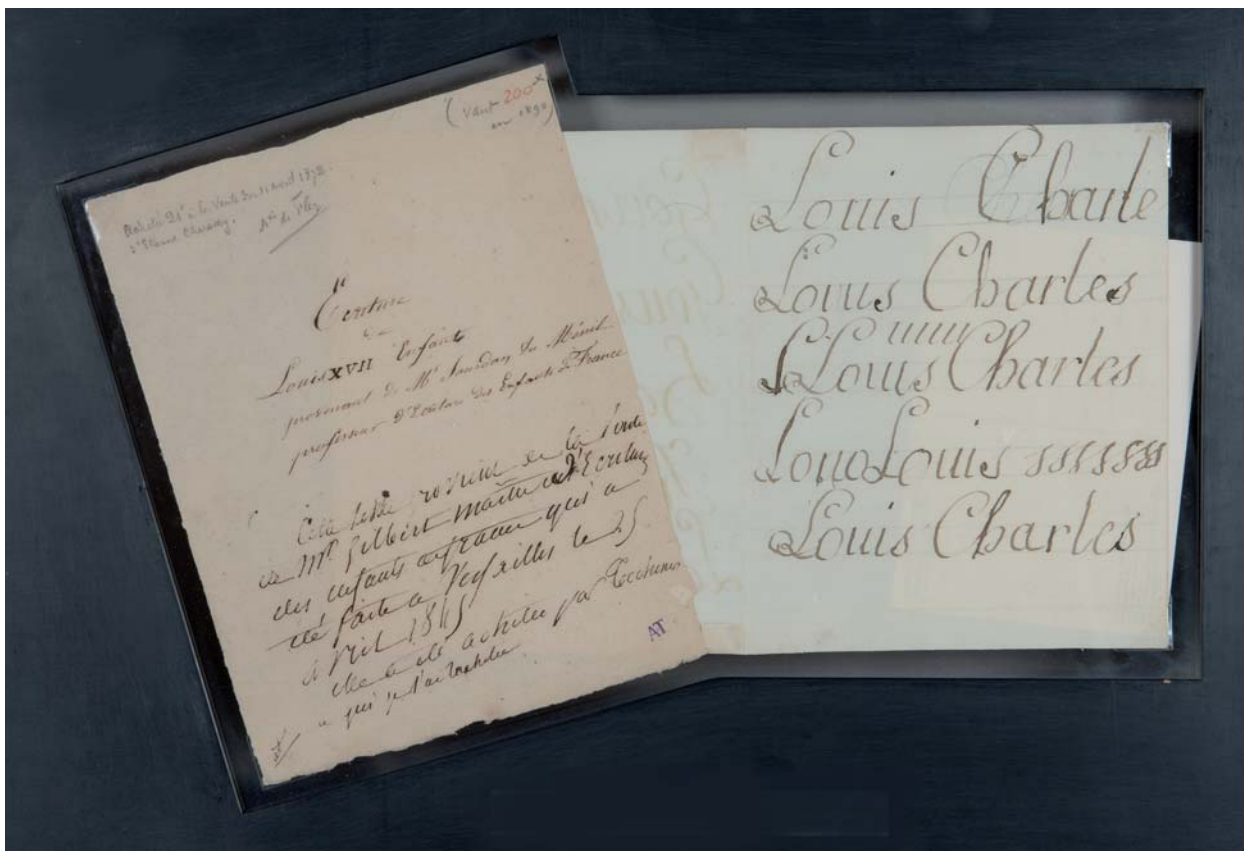 (Vaut 200
en 1890)
à la Vente du 11 avril 1872.
Ecriture
de
Louis XVII Enfant
provenant de Mr Jourdan du Ménil
professeur d'Ecriture des Enfants de France
Cette provient de la Vente
de Mr Gilbert maître d'Ecriture
des enfants de france qui a
été faite a Versailles le 25
avril 1845
elle a été achetée par Techener
a qui je l'ai
AT
Louis Charle
Louis Charles
Louis Charles
LouoLouis sssssss
Louis Charles